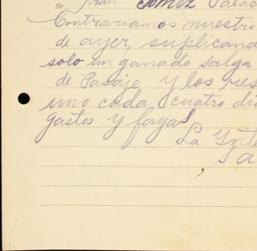 Sr. Juan Gomez Palac
Contrariamos nuestro
de ayer, suplicand
solo un ganado salga
de Pasaje y los res
uno cada cuatro dia
gastos y fayas
La Inte
Sa